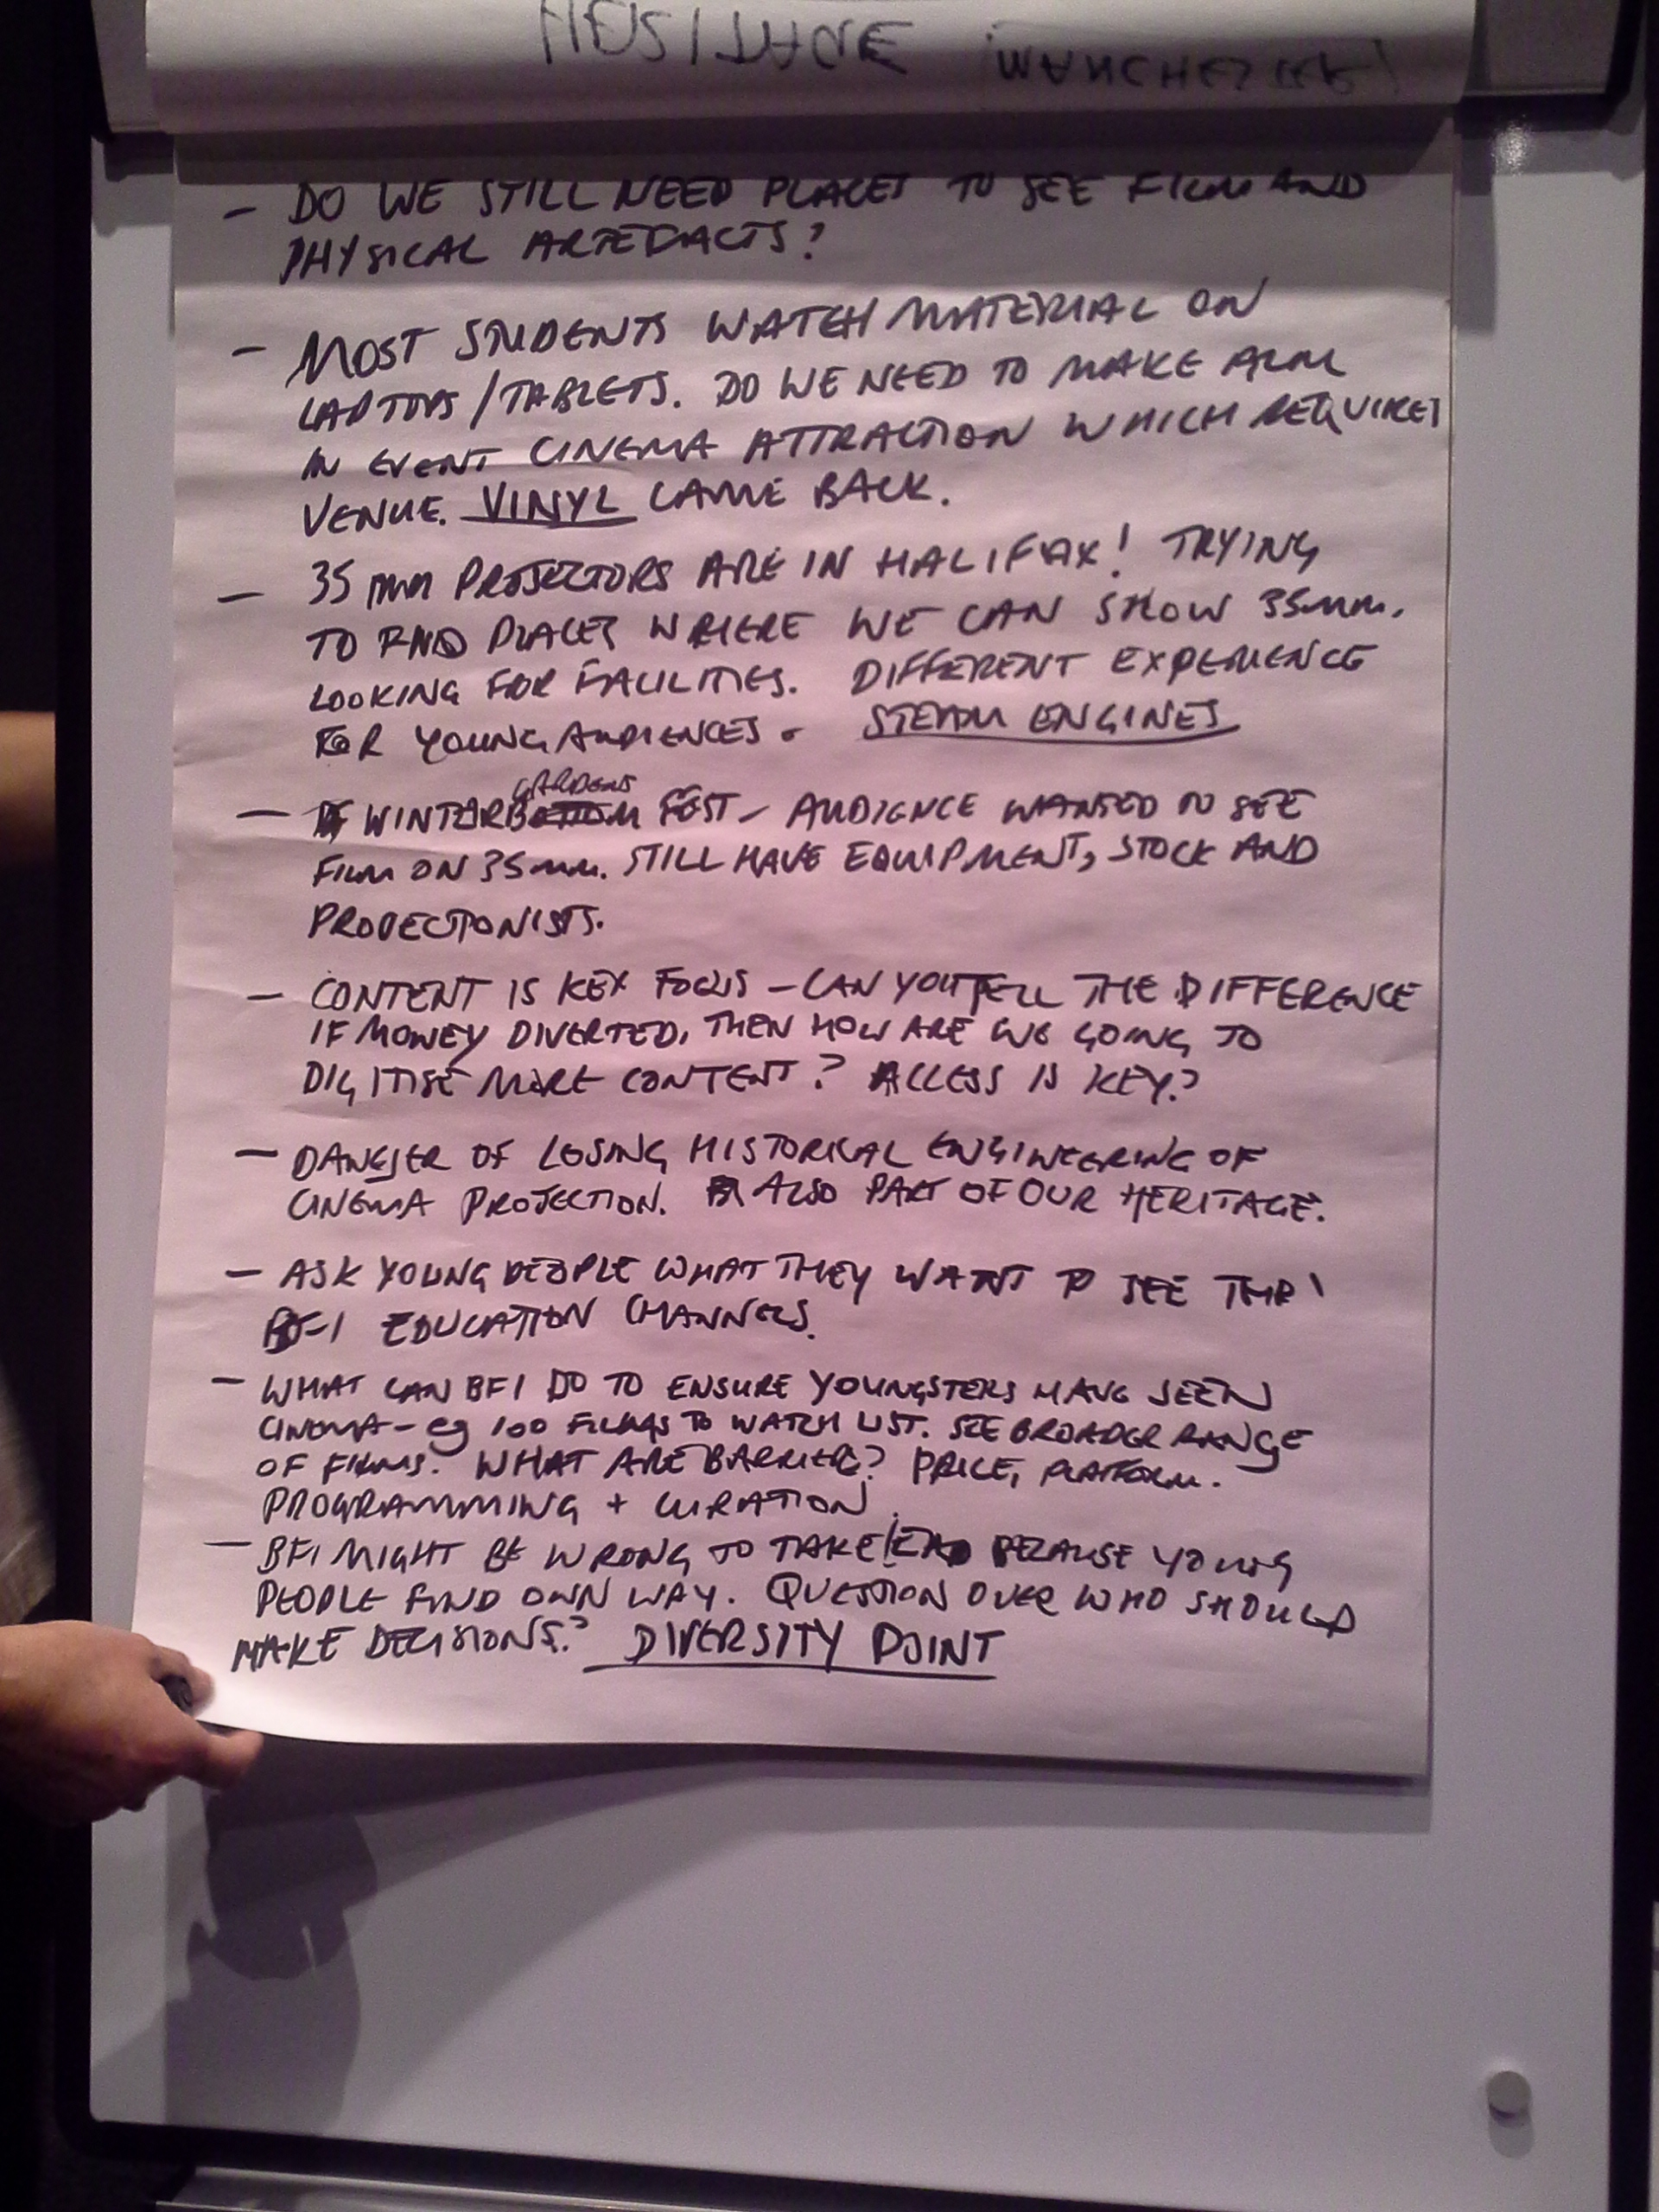 HERITAGE (MANCHESTER)
- DO WE STILL NEED PLACES TO SEE FILM AND
PHYSICAL ARTEFACTS?
- MOST STUDENTS WATCH MATERIAL ON
LAPTOPS/TABLETS. DO WE NEED TO MAKE FILM
IN EVENT CINEMA ATTRACTION WHICH REQUIRES
VENUE. VINYL CAME BACK.
- 35mm PROJECTORS ARE IN HALIFAX! TRYING
TO FIND PLACES WHERE WE CAN SHOW 35mm.
LOOKING FOR FACILITIES. DIFFERENT EXPERIENCE
FOR YOUNG AUDIENCES. STEAM ENGINES
GARDENS
- WINTER FEST - AUDIENCE WANTED TO SEE
FILM ON 35mm. STILL HAVE EQUIPMENT, STOCK AND
PROJECTIONISTS.
- CONTENT IS KEY FOCUS - CAN YOU TELL THE DIFFERENCE
IF MONEY DIVERTED, THEN HOW ARE WE GOING TO
DIGITISE MORE CONTENT? ACCESS IS KEY?
- DANGER OF LOSING HISTORICAL ENGINEERING OF
CINEMA PROJECTION. ALSO PART OF OUR HERITAGE.
- ASK YOUNG PEOPLE WHAT THEY WANT TO SEE THRO'
BFI EDUCATION CHANNELS.
- WHAT CAN BFI DO TO ENSURE YOUNGSTERS HAVE SEEN
CINEMA - eg 100 FILMS TO WATCH LIST. SEE BROADER RANGE
OF FILMS. WHAT ARE BARRIERS? PRICE, PLATFORM.
PROGRAMMING + CURATION.
- BFI MIGHT BE WRONG TO TAKE LEAD BECAUSE YOUNG
PEOPLE FIND OWN WAY. QUESTION OVER WHO SHOULD
MAKE DECISIONS? DIVERSITY POINT